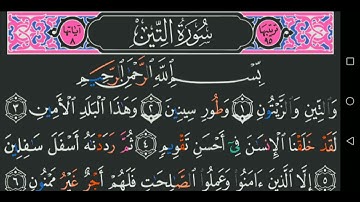 ترتيبها ٩٥ سُورَةُ التِّينِ آياتها ٨
بِسْمِ ٱللَّهِ ٱلرَّحْمَٰنِ ٱلرَّحِيمِ
وَٱلتِّينِ وَٱلزَّيْتُونِ ١ وَطُورِ سِينِينَ ٢ وَهَٰذَا ٱلْبَلَدِ ٱلْأَمِينِ ٣
لَقَدْ خَلَقْنَا ٱلْإِنسَٰنَ فِىٓ أَحْسَنِ تَقْوِيمٍ ٤ ثُمَّ رَدَدْنَٰهُ أَسْفَلَ سَٰفِلِينَ
٥ إِلَّا ٱلَّذِينَ ءَامَنُوا۟ وَعَمِلُوا۟ ٱلصَّٰلِحَٰتِ فَلَهُمْ أَجْرٌ غَيْرُ مَمْنُونٍ ٦